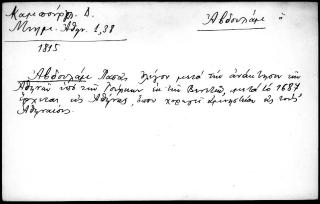 Καμπούρογλ. Δ.
Μνημ. Αθην. 1,38
Αβδουλάμ ὁ
1815
Αβδουλάμ Πασᾶς ὀλίγον μετά τήν ἀνάκτησιν τῶν
Ἀθηνῶν ὑπό τῶν Τούρκων ἐκ τῶν Βενετῶν, μετά τό 1687
ἔρχεται εἰς Ἀθήνας, ὅπου χορηγεῖ ἀμνηστίαν εἰς τούς
Ἀθηναίους.